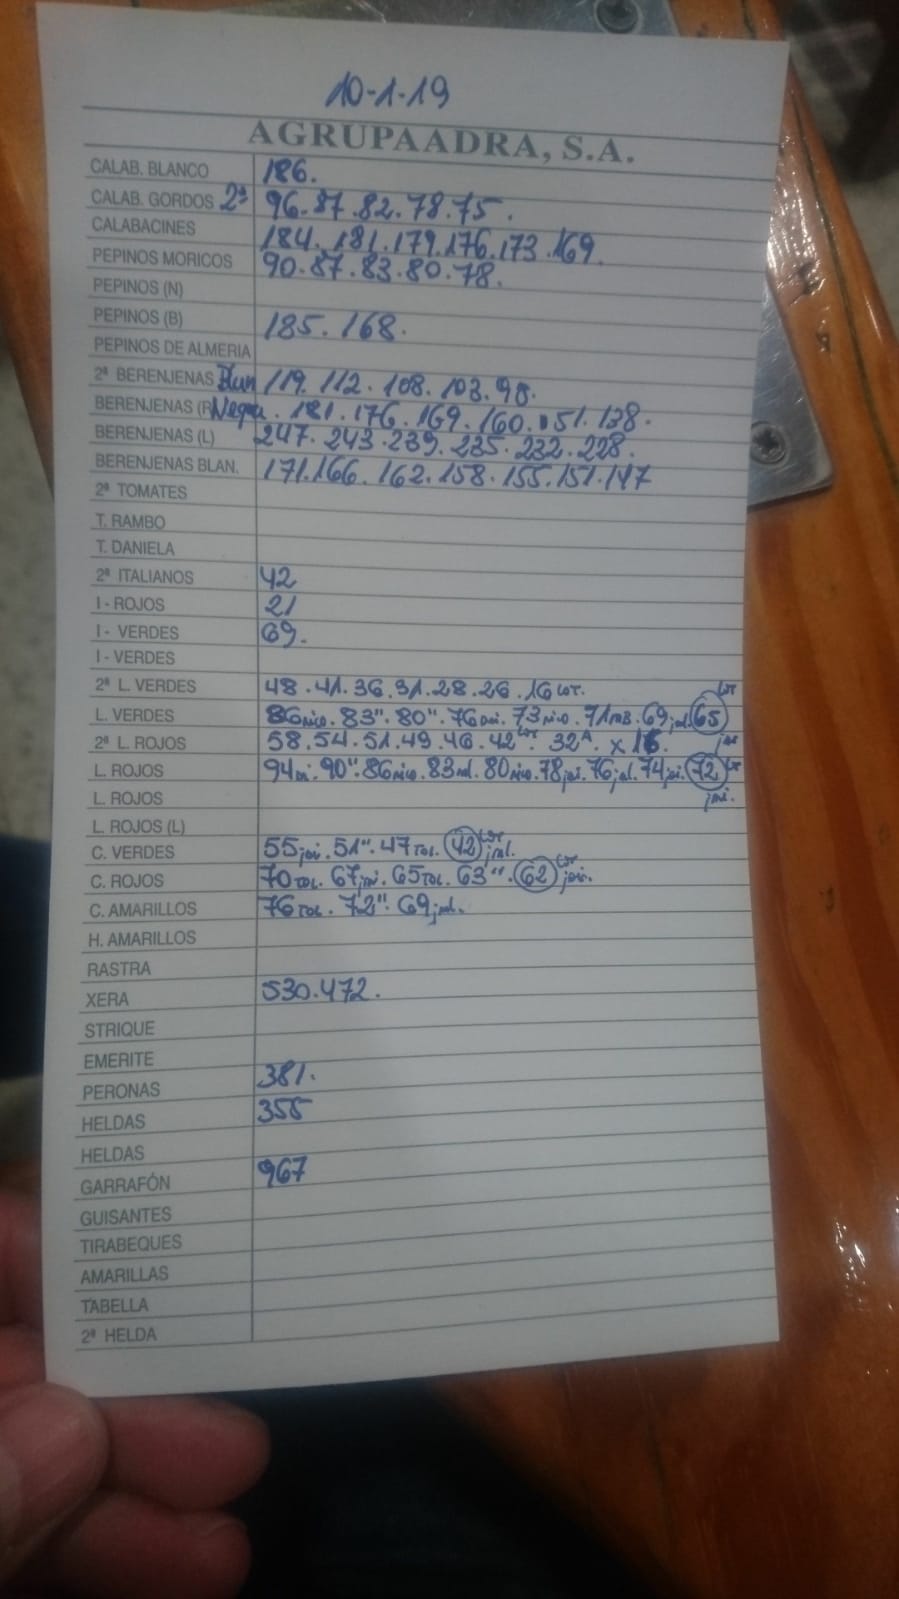 10-1-19
AGRUPAADRA, S.A.
CALAB. BLANCO 186.
CALAB. GORDOS 2ª 96.87.82.78.75.
CALABACINES 184.181.179.176.173.169.
PEPINOS MORICOS 90.87.83.80.78.
PEPINOS (N)
PEPINOS (B) 185.168.
PEPINOS DE ALMERIA
2ª BERENJENAS Blan 119.112.108.103.98.
BERENJENAS (R Negra. 181.176.169.160.151.138.
BERENJENAS (L) 247.243.239.235.232.228.
BERENJENAS BLAN. 171.166.162.158.155.151.147
2ª TOMATES
T. RAMBO
T. DANIELA
2ª ITALIANOS 42
I - ROJOS 21
I - VERDES 69.
I - VERDES
2ª L. VERDES 48.41.36.31.28.26.16
L. VERDES 86.83".80".76.73.71.69.65
2ª L. ROJOS 58.54.51.49.46.42.32.x16.
L. ROJOS 94.90".86.83.80.78.76.74.72
L. ROJOS
L. ROJOS (L)
C. VERDES 55.51".47.42
C. ROJOS 70.67.65.63".62
C. AMARILLOS 76.72".69
H. AMARILLOS
RASTRA
XERA 530.472.
STRIQUE
EMERITE
PERONAS 381.
HELDAS 355
HELDAS
GARRAFÓN 967
GUISANTES
TIRABEQUES
AMARILLAS
TABELLA
2ª HELDA